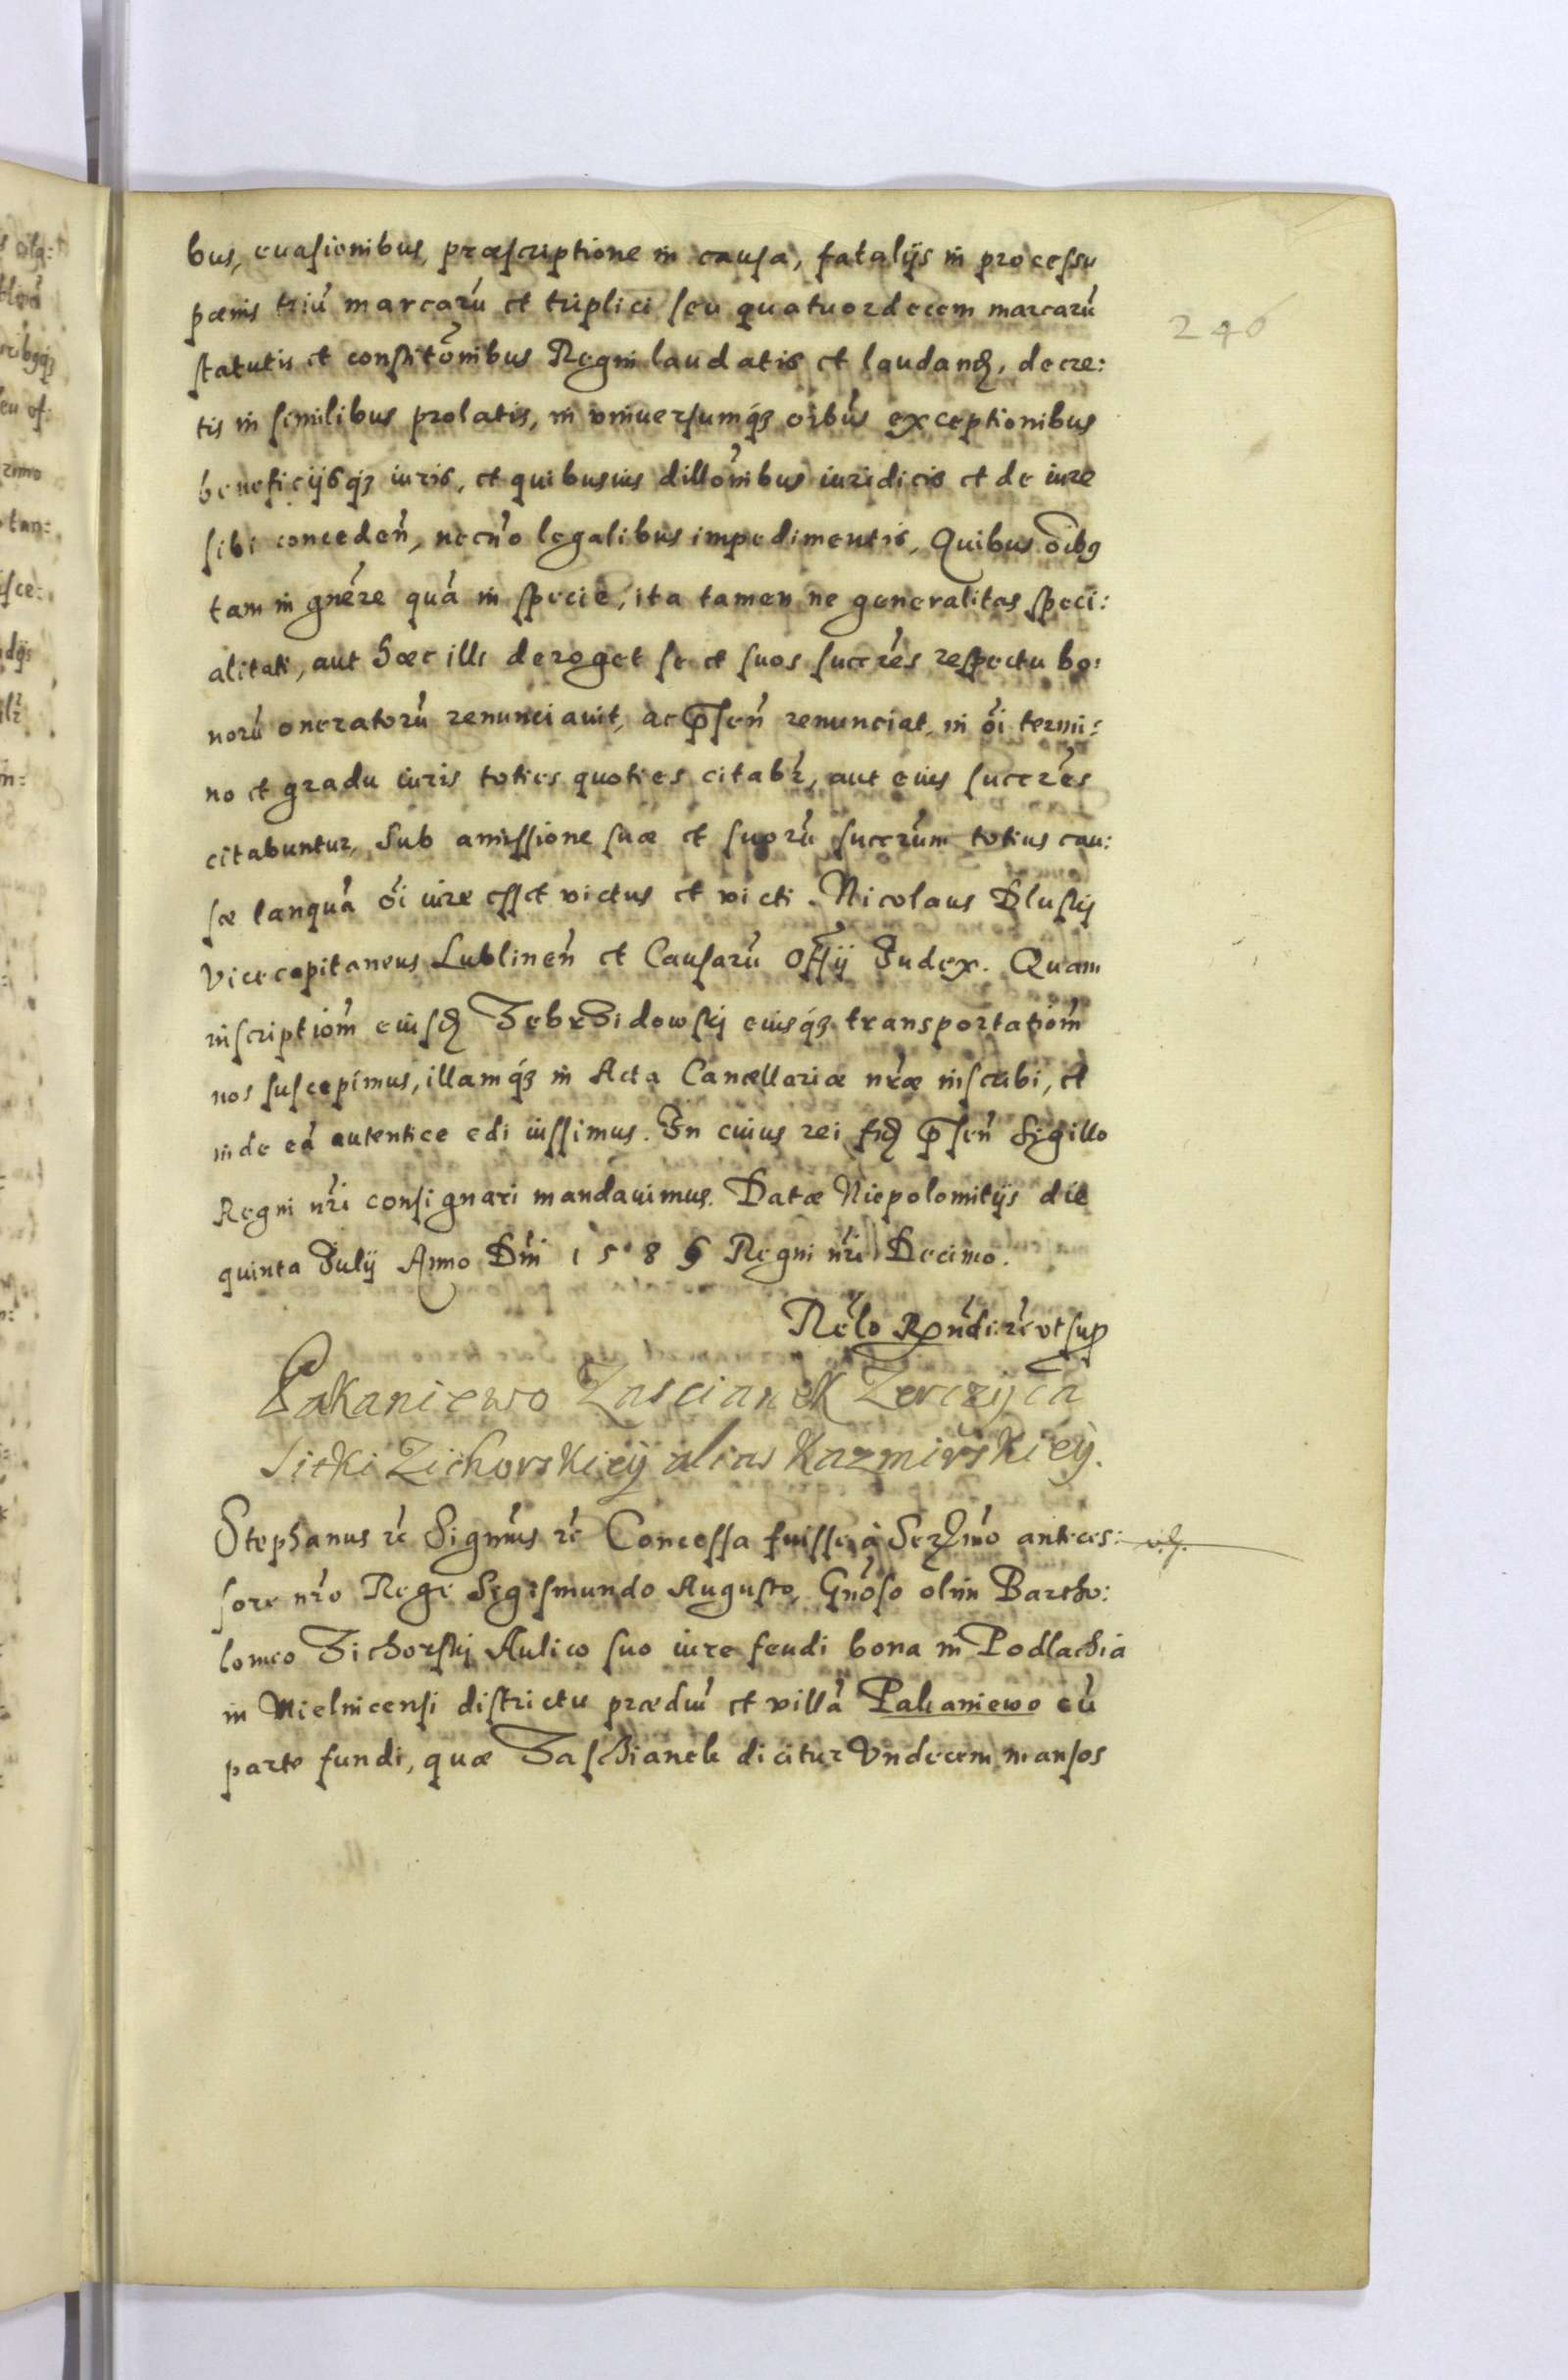 bus, euasionibus, præscriptione in causa, fatalijs in processu
pœnis triũ marcarũ et triplici seu quatuordecem marcarũ
240
statutis et constitõnibus Regni laudatis et laudanđ, decre:
tis in similibus prolatis, in vniuersumq́3 oĩbus exceptionibus
beneficijsq́3 iuris, et quibusuis dillõnibus iuridicis et de iure
sibi conceden̄, necn̄o legalibus impedimentis, Quibus oĩbꝯ
tam in gn̄ere quã in specie, ita tamen ne generalitas speci:
alitati, aut hæc illi deroget se et suos succr̄es respectu bo:
norũ oneratorũ renunciauit, ac p̄sen̄ renunciat, in õi termi:
no et gradu iuris toties quoties citabr̄, aut eius succr̄es
citabuntur, Sub amissione suæ et suorũ succr̄um totius cau:
sæ tanquã õi iure esset victus et victi. Nicolaus Dluskij
Vicecapitaneus Lublinen̄ et Causarũ Off̄ij Judex. Quam
inscriptiom̄ eiusđ Zebrzidowskj eiusq́3 transportatiom̄
nos suscepimus, illamq́3 in Acta Cancellariæ nr̄æ inscribi, et
inde eã autentice edi iussimus. In cuius rei fiđ p̄sen̄ Sigillo
Regni nr̄i consignari mandauimus. Datæ Niepolomitijs die
quinta Julij Anno Dn̄i 1585 Regni nr̄i Decimo.
Rel̄o Rn̄di: rc̄ vt sup
Pakaniewo Zascianek Zerczyca
Sitki Zichorskieÿ alias Kazmirskieÿ.
Stephanus rc̄ Signm̄s rc̄ Concessa fuisse à Serm̄o anteces:
sore nr̄o Rege Sigismundo Augusto, Gn̄oso olim Bartho:
lomeo Zichorskj Aulico suo iure feudi bona in Podlachia
in Mielnicensi districtu prædiũ et villã Pakaniewo cũ
parte fundi, quæ Zaschianek dicitur Vndecem mansos